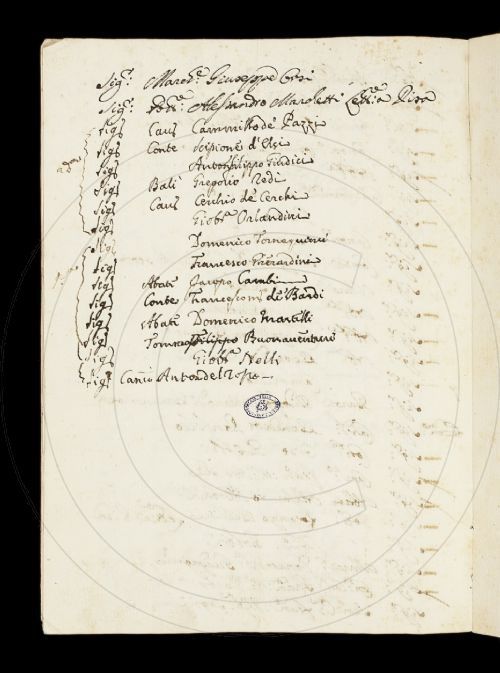 Sig.r March.e Giuseppe Orsi
Sig.r Dott.r Alessandro Marchetti Lett.e a Pisa
Sig.r Cav.r Cammillo de' Pazzi
Sig.r Conte Scipione d'Elci
Sig.r Anton Filippo Giudici
Sig.r Bali Gregorio Redi
Sig.r Cav.r Cerchio de' Cerchi
Sig.r Gio: Orlandini
Sig.r Domenico Tornaquinci
Sig.r Francesco Gherardini
Sig.r Abate Jacopo Cambi
Sig.r Conte Francesco M.a de' Bardi
Sig.r Abate Domenico Martelli
Sig.r Tommaso Filippo Buonaventuri
Sig.r Gio: Nelli
Sig.r Can.co Anton del Rosso